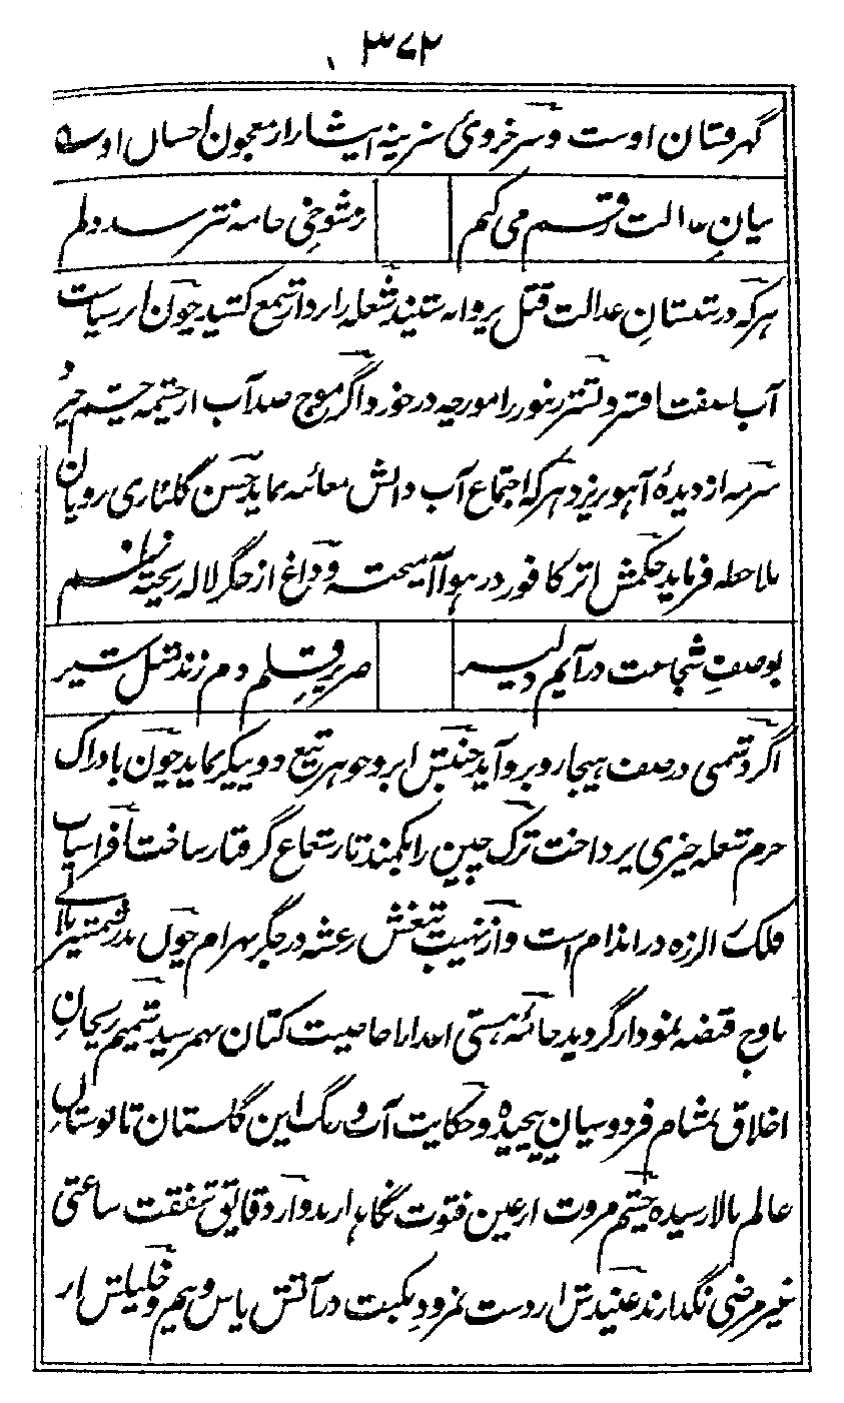 ۳۷۲
گهرفشان اوست و سرخروئ سفرینه ایشار از معجون احسان اوست
بیانِ عدالت رقم می کنم | ز شوخی خامه نترسد دلم
هرکه در شبستانِ عدالت قتل پروانه بیند شعله را بردار شمع کشید چون ابر سیاست
آب افتد و لشتر زنبور را مورچه در خورد اگر موج صد آب از چشمه چشم
سرمه از دیدۀ آهو بریزد هرکه اجتماع آب و آتش معائنه نماید حسن گلناری رویان
ملاحظه فرماید حکمش اثر کافور در هوا آمیخته و داغ از جگر لاله ریخته
بوصفِ شجاعت درآیم دلیر | صریرِ قلم دم زند مثل شیر
اگر دشمنی در صف هیجا روبرو آید جنبش ابرو جوهر تیغ دو پیکر نماید چون با دراک
جرم شعله خیزی پرداخت ترک چین را بکمند تار شعاع گرفتار ساخت افراسیاب
فلک را لرزه در اندام است و از نهیب تیغش رعشه در جگر بهرام چون بدر شمشیر
باوج قبضه نمودار گردید خانۀ هستی اعدا را خاصیت کتان بهم رسید شمیم ریحان
اخلاق بمشام فردوسیان پیچیده و حکایت آب و رنگ این گلستان تا بوستان
عالم بالا رسیده چشم مروت از عین فتوت نگاه دارد و از دقایق شفقت ساعتی
غیر مرضی نگذارند عنیدش از دست نمرودِ نکبت در آتش یاس و بیم و خلیلش از